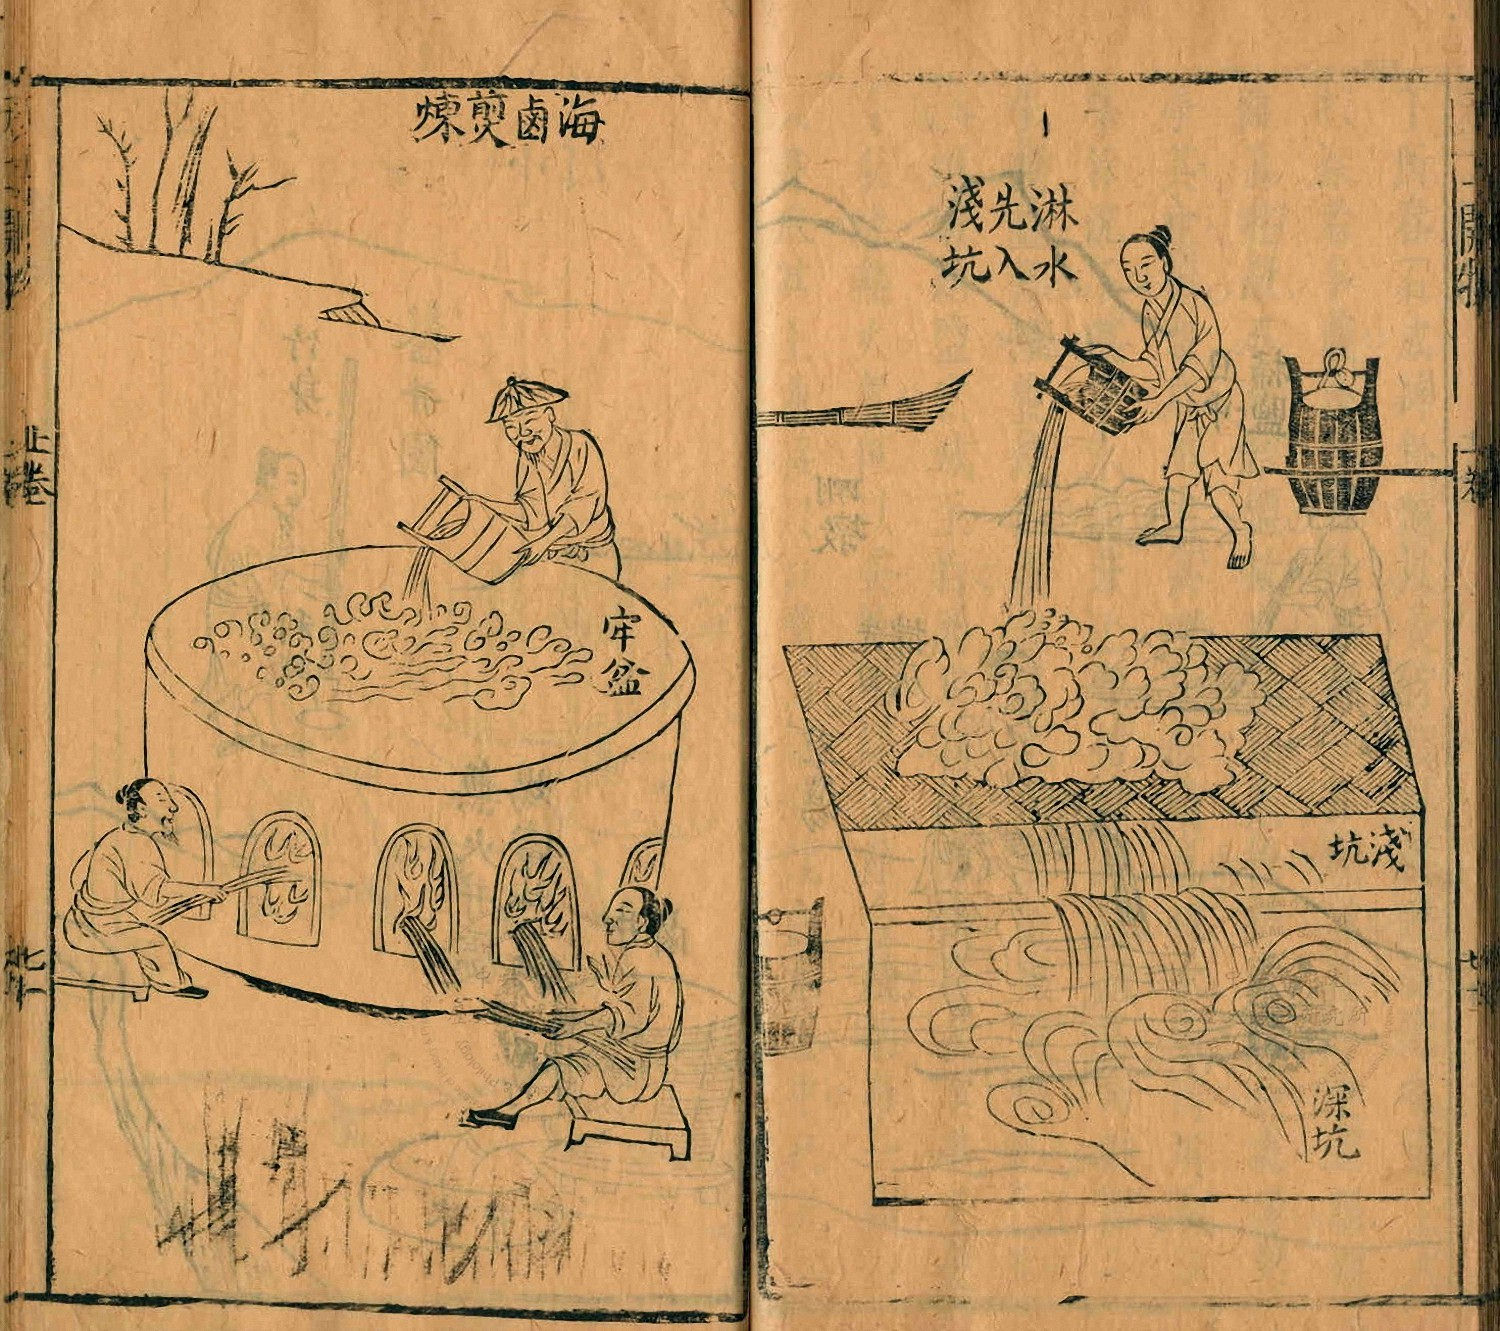 淋水
先入
淺坑
淺坑
深坑
海鹵煎煉
牢盆